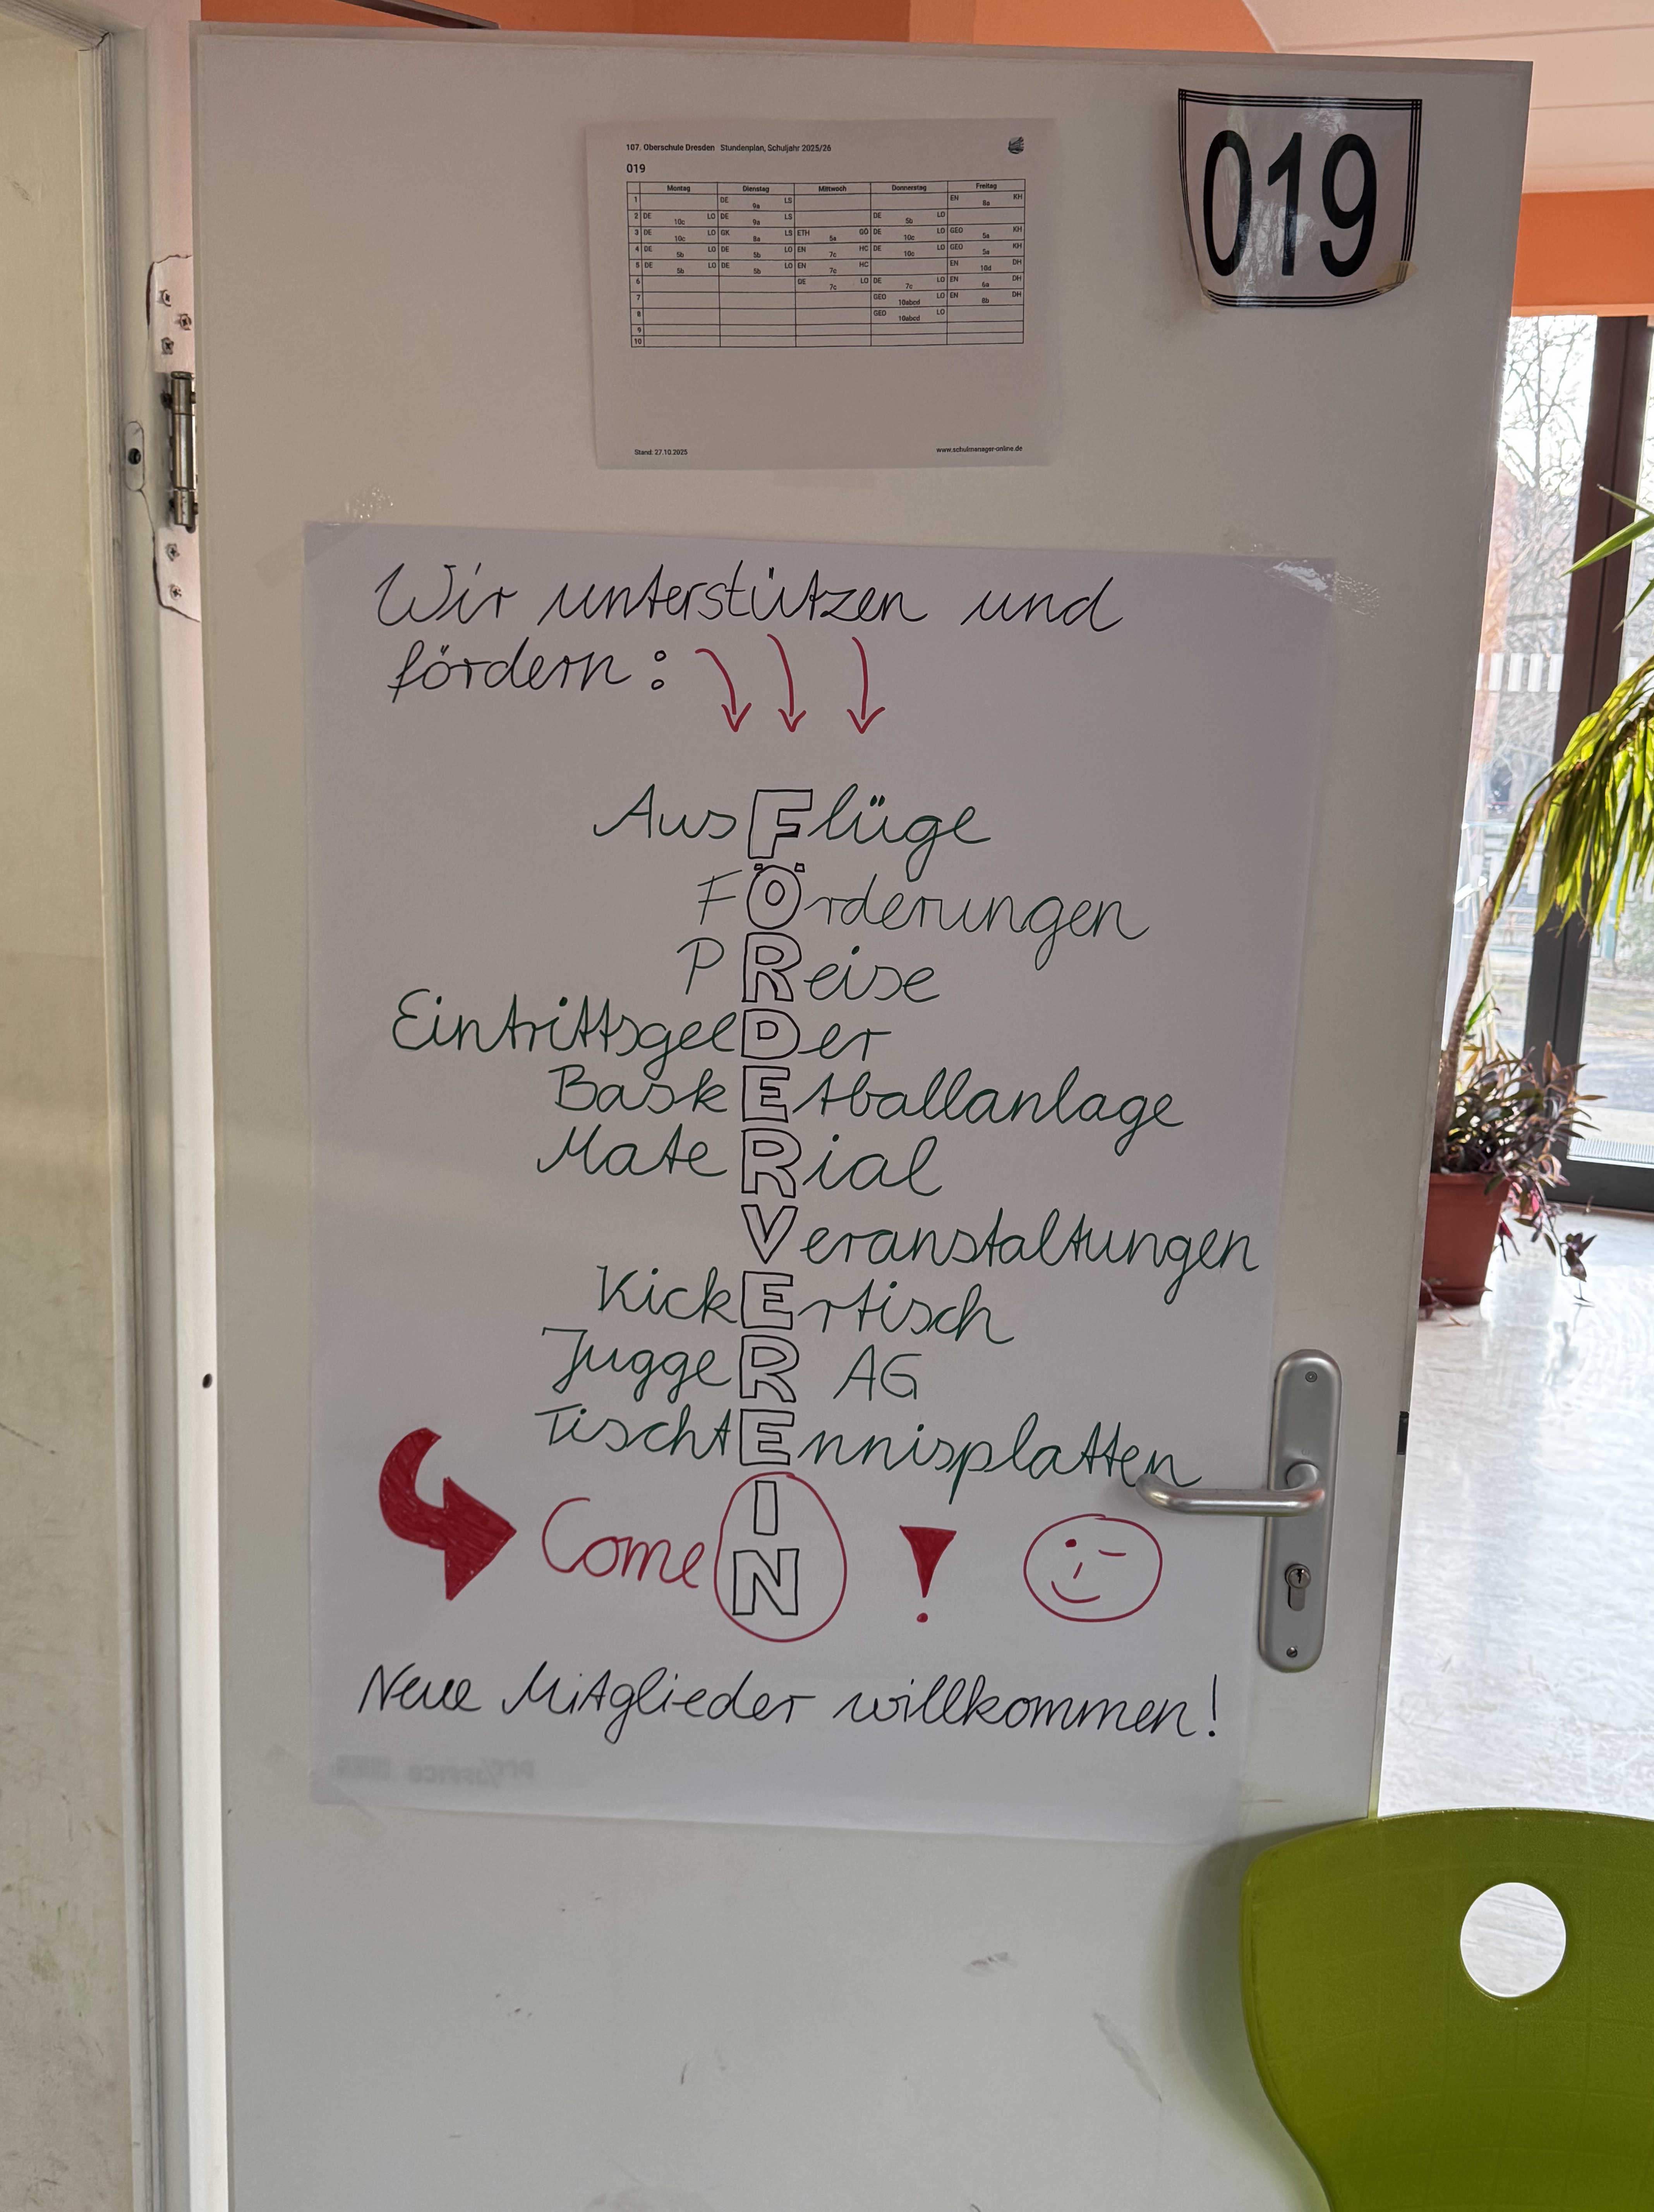 107. Oberschule Dresden Stundenplan, Schuljahr 2025/26
019
019
Montag Dienstag Mittwoch Donnerstag Freitag
1 DE LS 9a EN KH 8a
2 DE LO 10c DE LS 9a DE LO 5b
3 DE LO 10c GK LS 8a ETH GÖ 5a DE LO 10c GEO KH 5a
4 DE LO 5b DE LO 5b EN HC 7c DE LO 10c GEO KH 5a
5 DE LO 5b DE LO 5b EN HC 7c EN DH 10d
6 DE LO 7c DE LO 7c EN DH 6a
7 GEO LO 10abcd EN DH 8b
8 GEO LO 10abcd
9
10
Stand: 27.10.2025 www.schulmanager-online.de
Wir unterstützen und
fördern:
AusFlüge
FÖrderungen
PReise
EintrittsgelDer
BaskEtballanlage
MateRial
Veranstaltungen
KickErtisch
JuggeR AG
TischtEnnisplatten
I
Come N !
Neue Mitglieder willkommen!